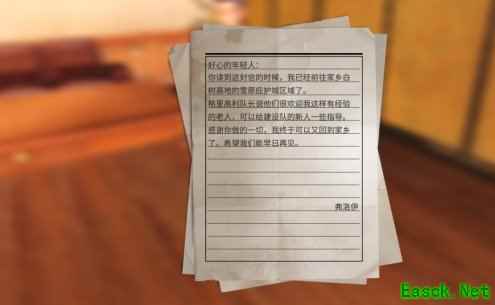 好心的年轻人：
你读到这封信的时候，我已经前往家乡白
树高地的雪原庇护城区域了。
格里高利队长说他们很欢迎我这样有经验
的老人，可以给建设队的新人一些指导。
感谢你做的一切，我终于可以又回到家乡
了。希望我们能早日再见。
弗洛伊
Easck.Net